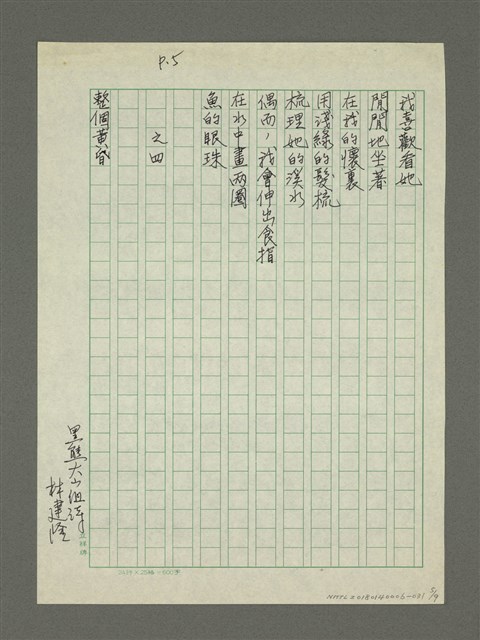 P.5
我喜歡看她
閒閒地坐著
在我的懷裏
用淺綠的髮梳
梳理她的溪水
偶而，我會伸出食指
在水中畫兩圈
魚的眼珠
之四
整個黃昏
黑熊大山組詩
林建隆
24行×25格=600字
NMTL20180140006-001
5/9